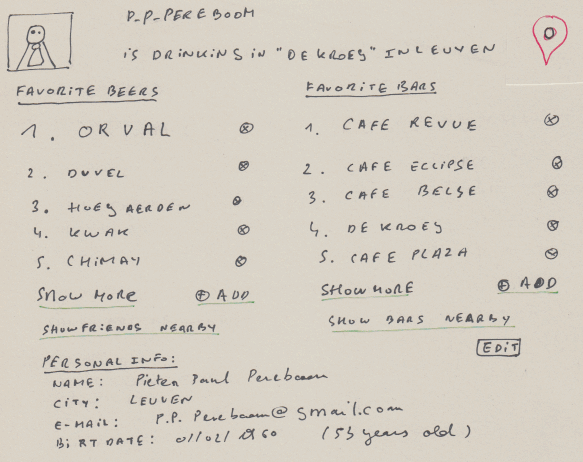 P_P_PEREBOOM
is DRINKING in "DE KROEG" IN LEUVEN
FAVORITE BEERS
1. ORVAL
2. DUVEL
3. HOEGAERDEN
4. KWAK
5. CHIMAY
SHOW MORE ADD
SHOW FRIENDS NEARBY
FAVORITE BARS
1. CAFE REVUE
2. CAFE ECLIPSE
3. CAFE BELGE
4. DE KROEG
5. CAFE PLAZA
SHOW MORE ADD
SHOW BARS NEARBY
EDIT
PERSONAL INFO:
NAME: Pieter Paul Pereboom
CITY: LEUVEN
E-MAIL: P.P. Pereboom@gmail.com
BIRTDATE: 01/02/1960 (53 years old)